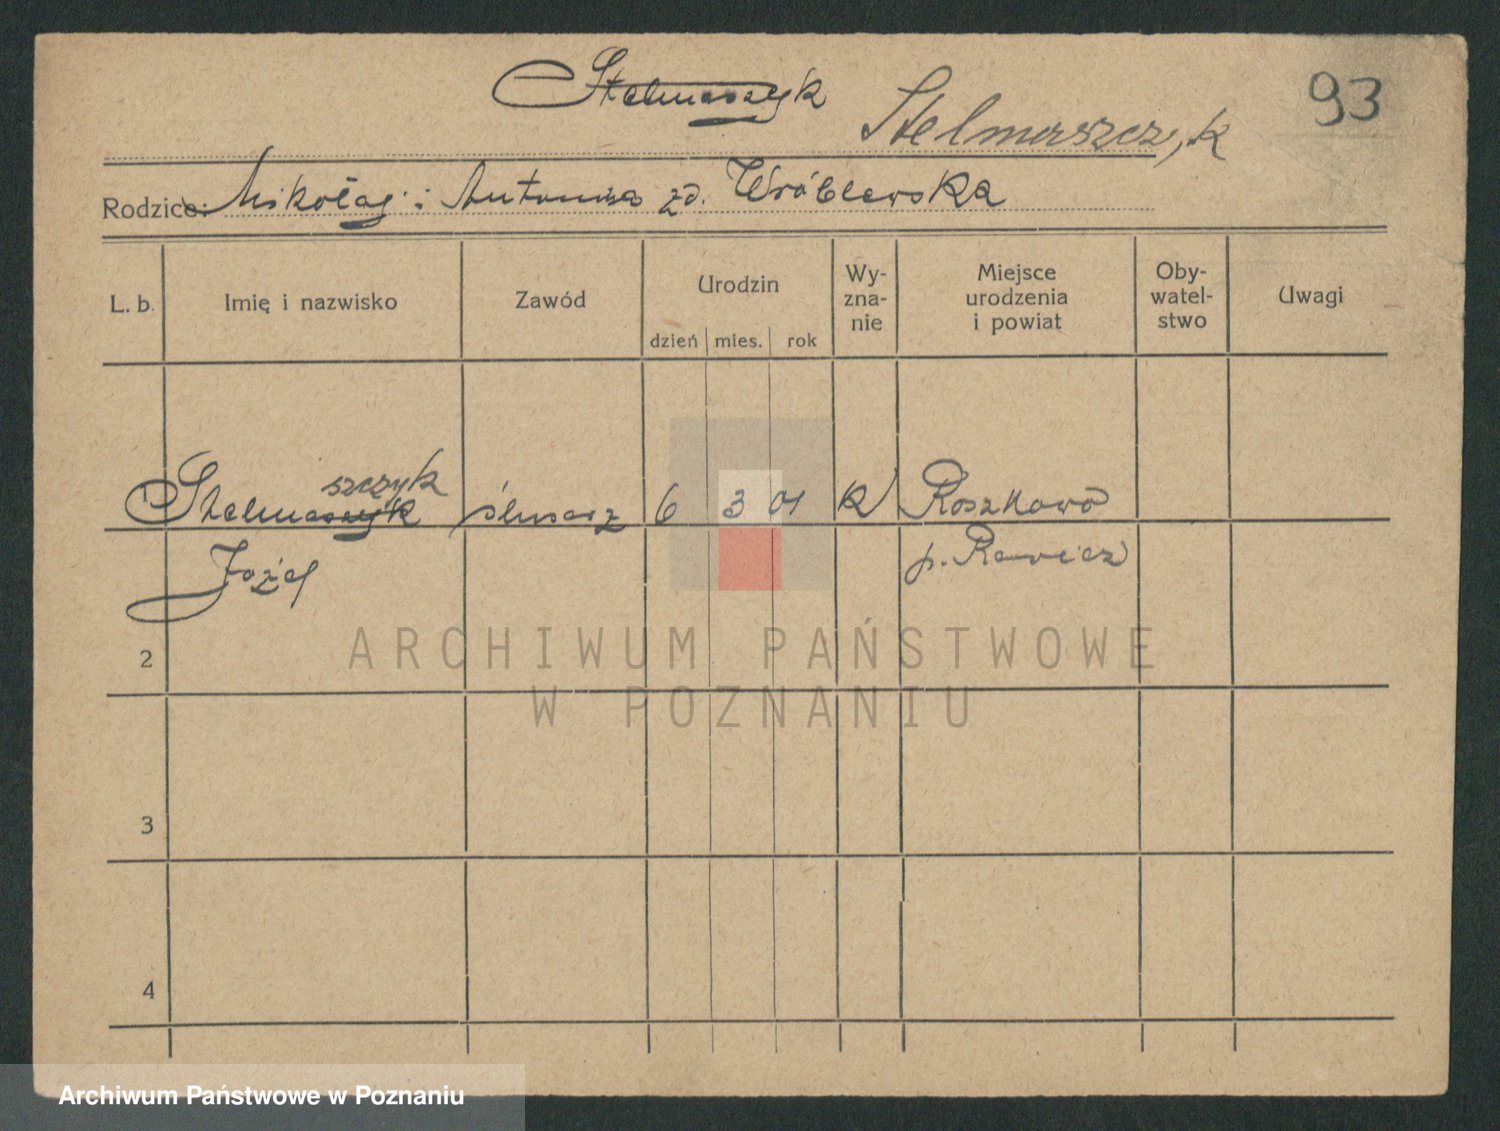 Stelmaszyk
Stelmaszczyk
93
Rodzice: Mikołaj i Antonina zd. Wróblewska
L. b. Imię i nazwisko Zawód Urodzin Wy-zna-nie Miejsce urodzenia i powiat Oby-watel-stwo Uwagi
dzień mies. rok
szczyk
1 Stelmaszyk ślusarz 6 3 01 K Roszkowo
Józef p. Rawicz
2
3
4
ARCHIWUM PAŃSTWOWE
W POZNANIU
Archiwum Państwowe w Poznaniu